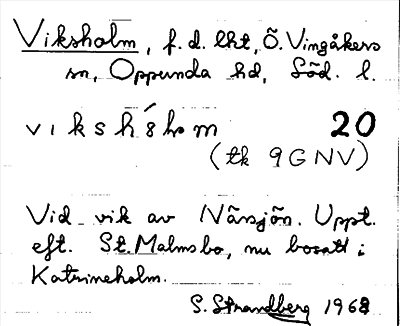 Viksholm, f.d. lht, Ö. Vingåkers
sn, Oppunda hd, Söd. l.
vikshólm 20
(tk 9GNV)
Vid vik av Näsnjön. Uppt.
eft. St. Malmsbo, nu bosatt i
Katrineholm.
S. Strandberg 1968